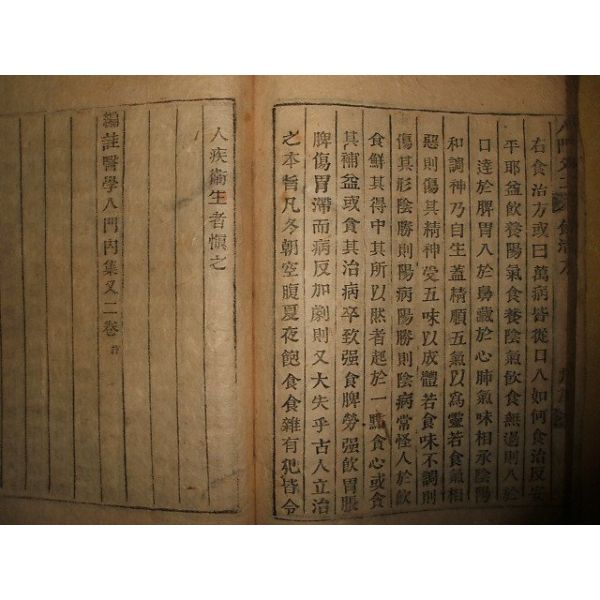 右食治方或曰萬病皆從口入如何食治反安
平耶益飲養陽氣食養陰氣飲食無過則入於
口達於脾胃入於鼻藏於心肺氣味相承陰陽
和調神乃自生蓋精順五氣以為靈若食氣相
惡則傷其精神受五味以成體若食味不調則
傷其形陰勝則陽病陽勝則陰病常怪人於飲
食鮮其得中其所以然者起於一點食心或食
其補益或食其治病卒致强食脾勞强飲胃脹
脾傷胃滯而病反加劇則又大失乎古人立治
之本旨凡冬朝空腹夏夜飽食食雜有犯皆令
人疾衛生者慎之
編註醫學入門內集又二卷